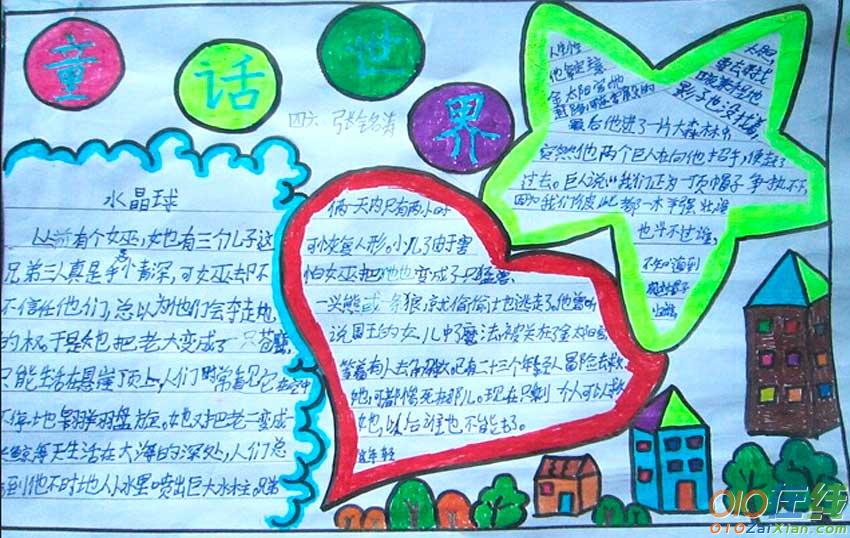 童话世界
四六 张铭涛
水晶球
从前有个女巫,她也有三个儿子这
兄弟三人真是手小青深,可女巫却不
不信任他们,总以为他们会夺走她
的权。于是她把老大变成了一只苍鹰,
只能生活在悬崖顶上,人们时常看见它在空中
不停地翱翔盘旋。她又把老二变成一
鲸每天生活在大海的深处,人们总
到他不时地从水里喷出巨大水柱。兄弟
俩一天内只有两小时
可恢复人形。小儿子由于害
怕女巫把他也变成了只猛兽
一头熊或一条狼,就偷偷土也逃走了。他曾听
说国王的女儿中了魔法被关在了金太阳宫
等着有人去解救。已有二十三个年轻人冒险去救
她,可都惨死在那儿。现在只剩一个人可以救
她,以后谁也不能去了。
他
金太阳宫
最后他进了一片大森林
突然他两个巨人在向他招手,便走了
过去。巨人说:“我们正为一顶帽子争执不下,
因为我们彼此都一木羊强壮谁
也斗不过谁,
不知道到
010在线
010ZaiXian.com